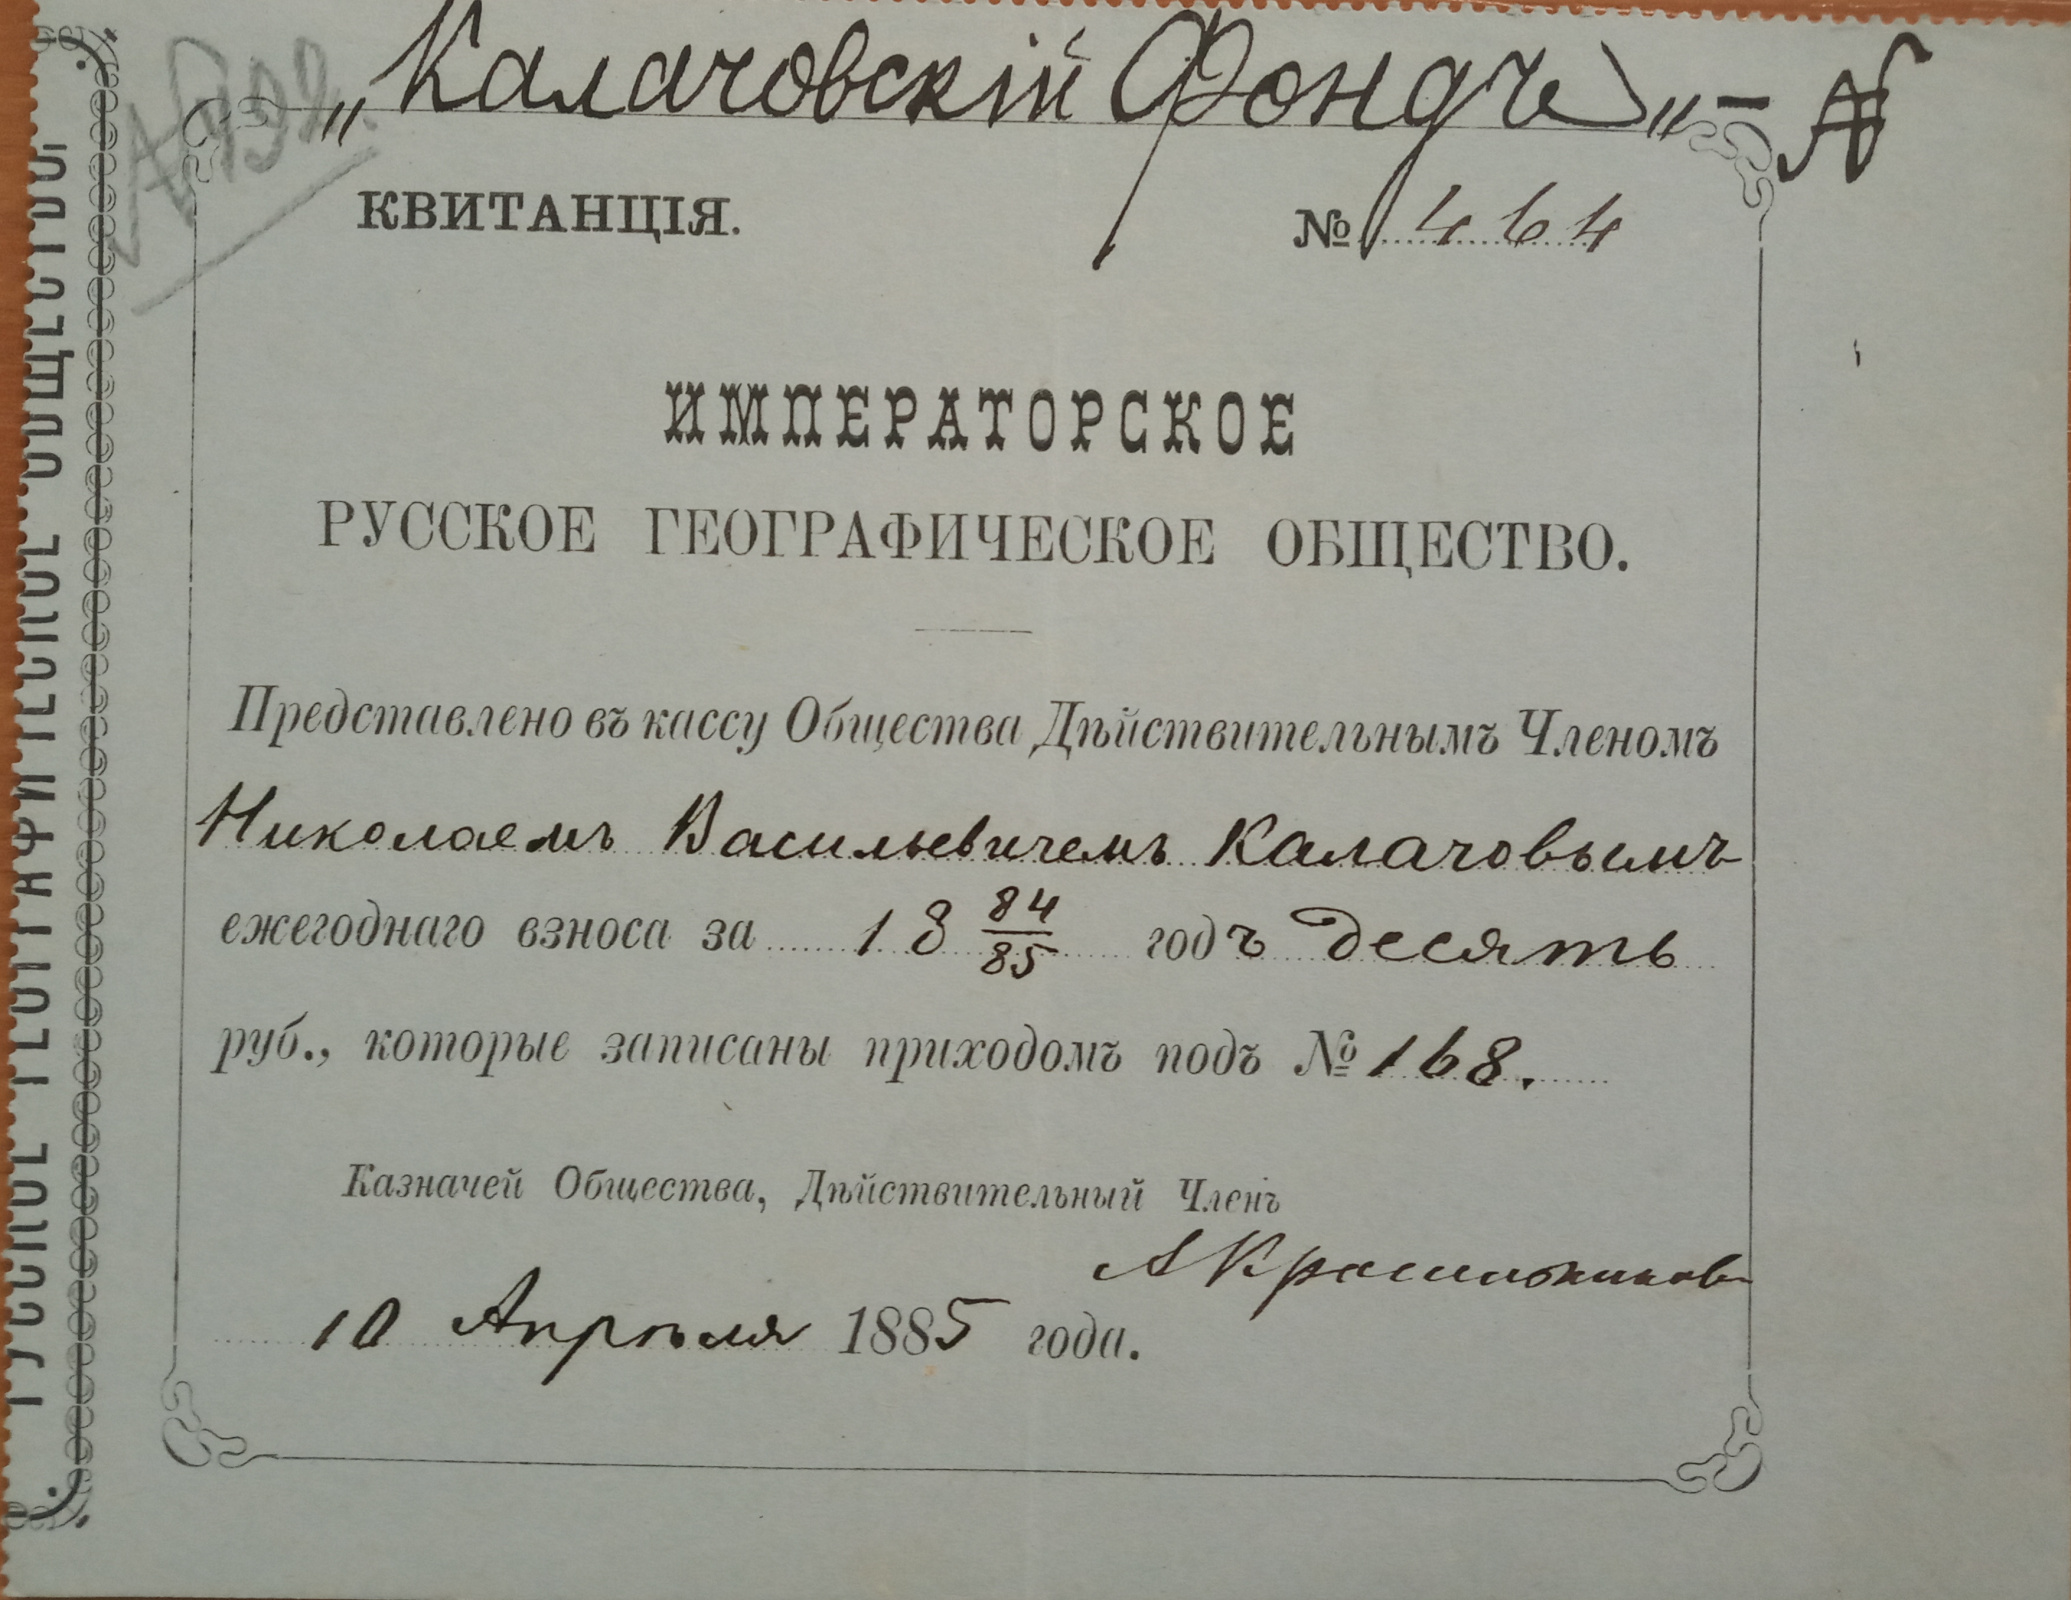 „Калачовскій Фондъ„ — №
№ 192.
КВИТАНЦІЯ. № 464
ИМПЕРАТОРСКОЕ
РУССКОЕ ГЕОГРАФИЧЕСКОЕ ОБЩЕСТВО.
Представлено въ кассу Общества Дѣйствительнымъ Членомъ
Николаемъ Васильевичемъ Калачовымъ
ежегоднаго взноса за 18 84/85 годъ десять
руб., которые записаны приходомъ подъ № 168.
Казначей Общества, Дѣйствительный Членъ
А Красильниковъ
10 Апрѣля 1885 года.
РУССКОЕ ГЕОГРАФИЧЕСКОЕ ОБЩЕСТВО.